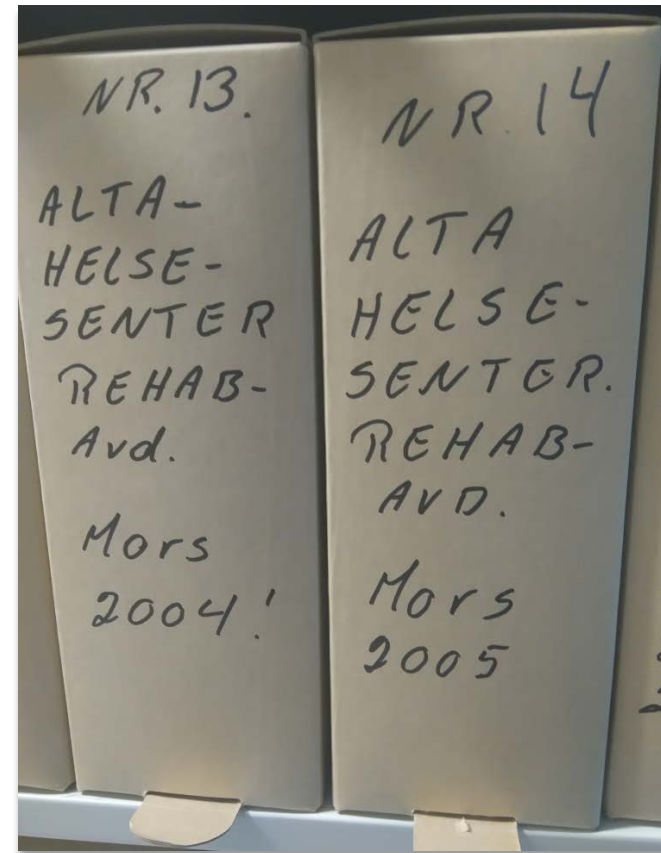 NR. 13.
ALTA-
HELSE-
SENTER
REHAB-
Avd.
Mors
2004!
NR. 14
ALTA
HELSE-
SENTER.
REHAB-
AVD.
Mors
2005